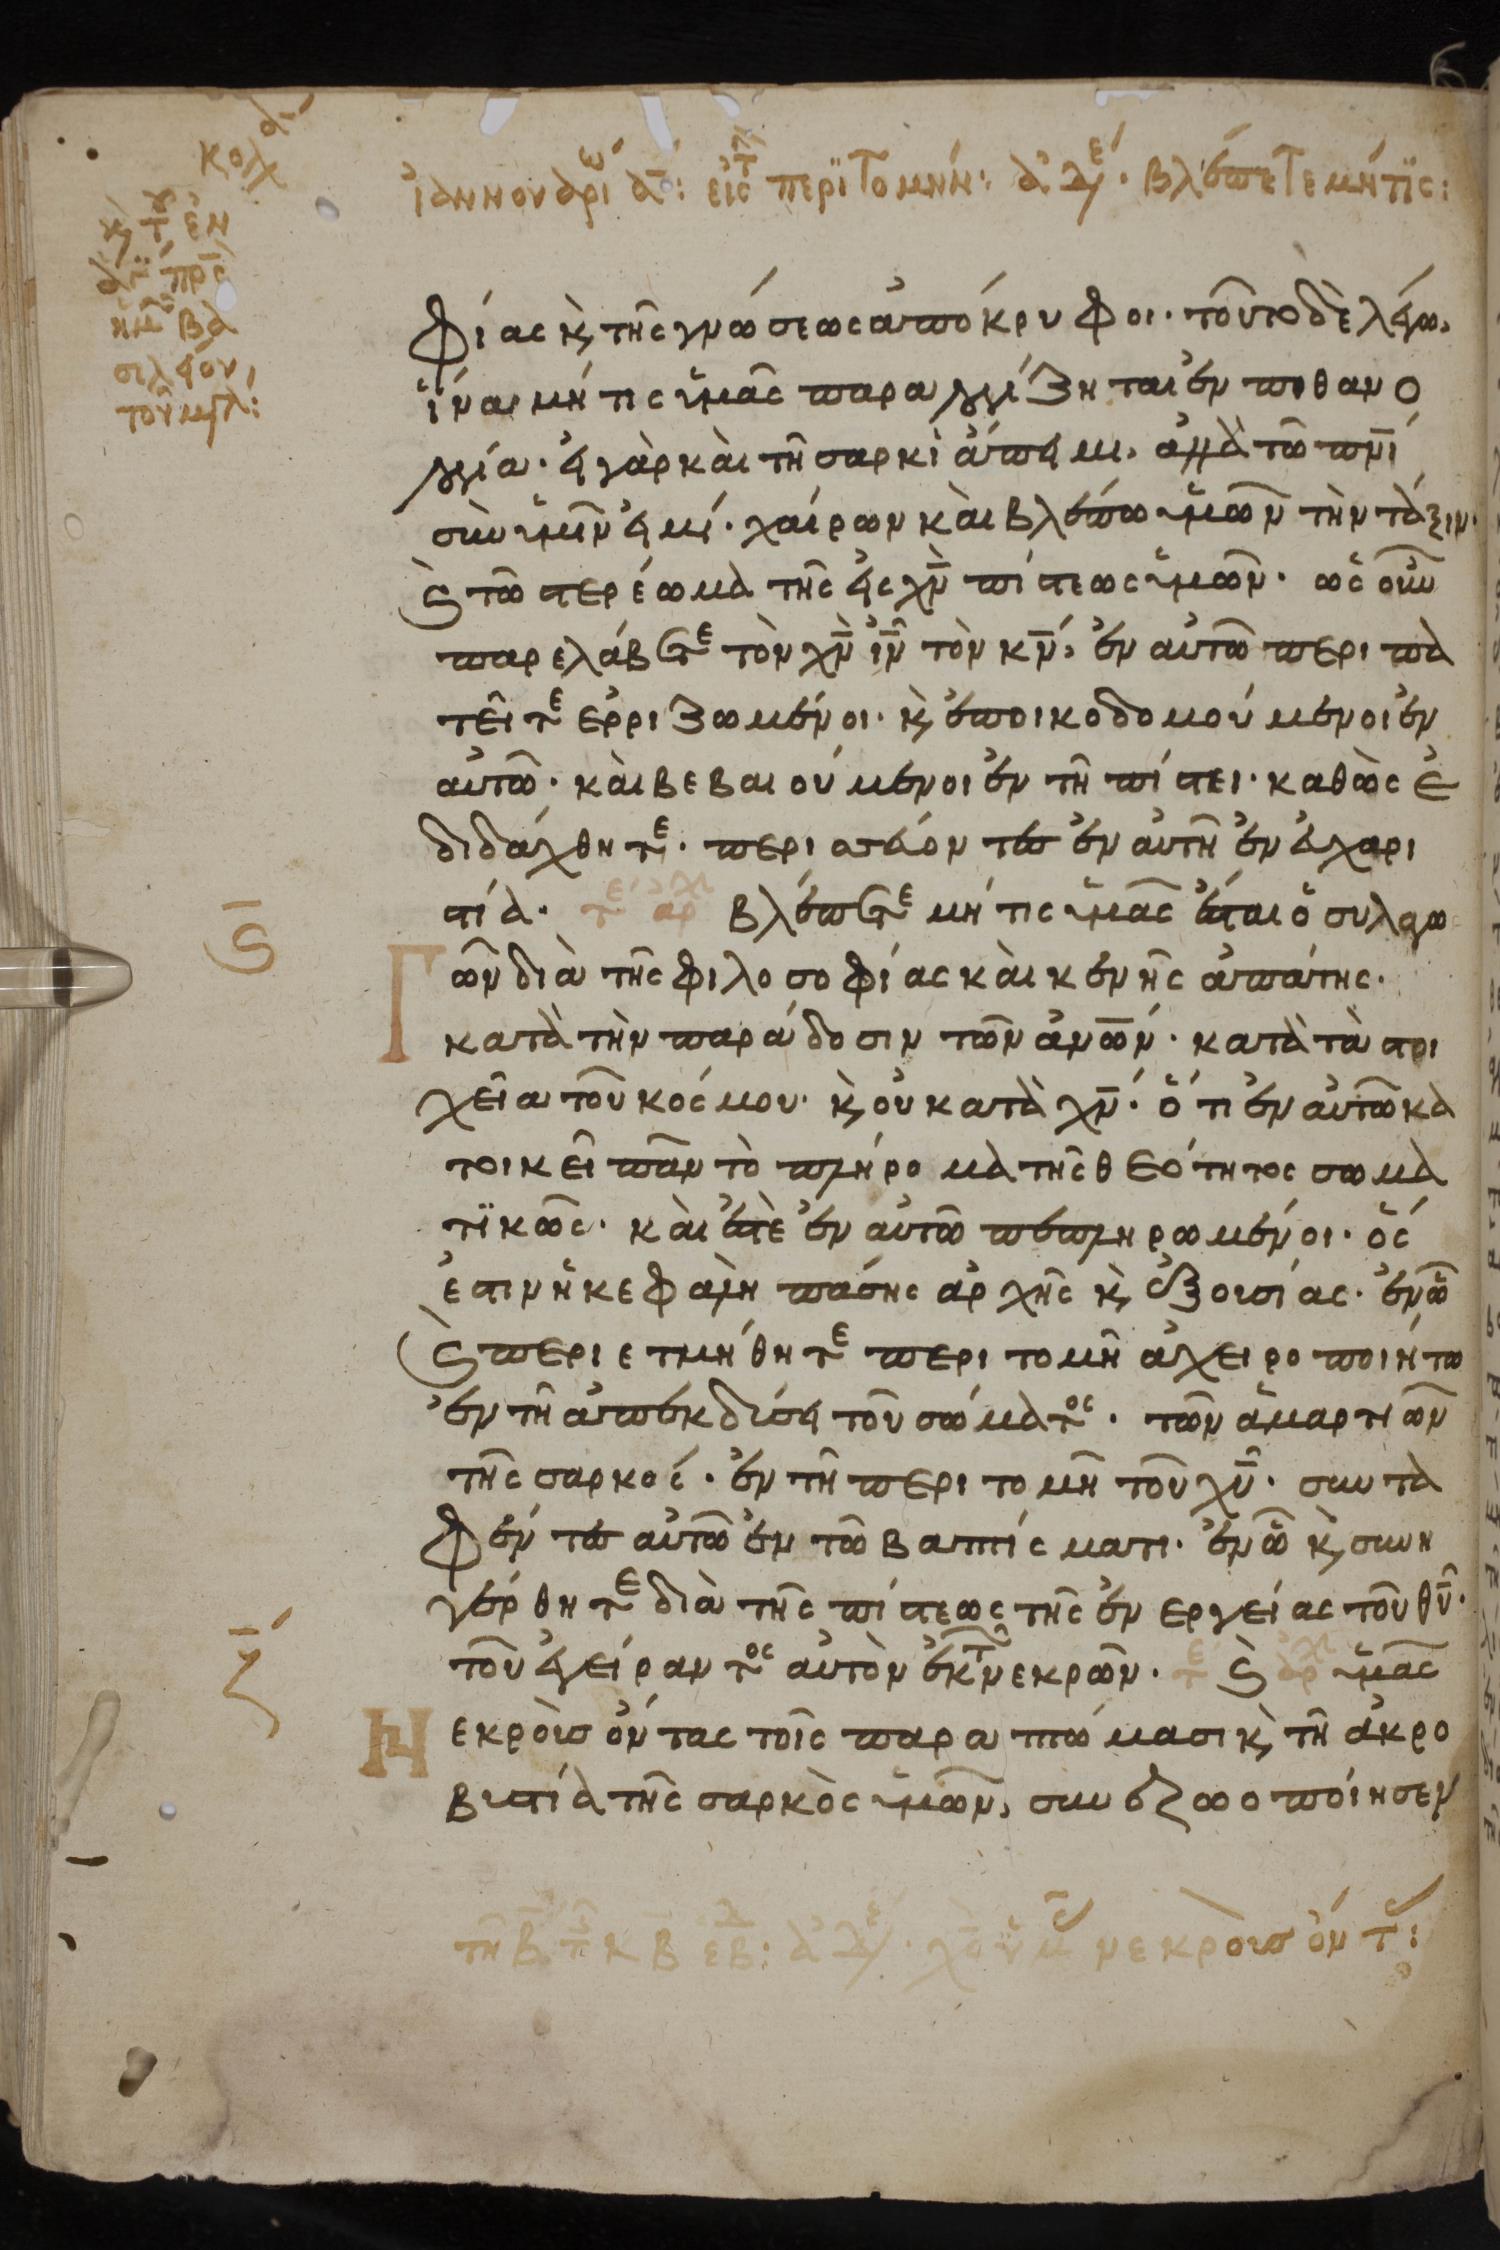 ἰαννουαρίω ά: εἰς τ περϊτομήν: ἀδελ. βλέπετε μήτϊς:
φίας κ, τῆς γνώσεως ἀπόκρυφοι. τοῦτο δὲ λέγω,
ἵναι μή τις ὑμᾶς παραλογίζηται ἐν πιθανο
λογία. εἰ γὰρ καὶ τῆ σαρκὶ ἄπειμι, ἀλλὰ τῶ πν̅ι
σὺν ὑμῖν εἰμί. χαίρων καὶ βλέπω ὑμῶν τὴν τάξιν.
ϛ τῶ στερέωμα τῆς εἰς χν̅ πίστεως ὑμῶν. ὡς οὖν
παρελάβετε τὸν χν̅ ιν̅ τὸν κν̅, ἐν αὐτῶ περιπα
τεῖτε ερριζωμένοι. κ, ἐποικοδομούμενοι ἐν
αὐτῶ. καὶ βεβαιούμενοι ἐν τῆ πίστει. καθὼς ἐ
διδάχθητε. περισσεύοντες ἐν αὐτῆ ἐν εὐχαρι
στία. τε αρχ βλέπετε μή τις ὑμᾶς ἔσται ὁ συλαγω
Γ
ῶν διὰ τῆς φιλοσοφίας καὶ κενῆς ἀπάτης.
κατὰ τὴν παράδοσιν τῶν ἀνω̅ν. κατὰ τὰ στοι
χεῖα τοῦ κόσμου. κ, οὐ κατὰ χν̅. ὅτι ἐν αὐτῶ κα
τοικεῖ πᾶν τὸ πλήρομα τῆς θεότητος σωμα
τϊκῶς. καὶ ἐστὲ ἐν αὐτῶ πεπληρωμένοι. ὅς
ἐστιν ἡ κεφαλὴ πάσης ἀρχῆς κ, ἐξουσίας. ἐν ὧ
ϛ περιετμήθητε περιτομῆ ἀχειροποιήτω
ἐν τῆ ἀπεκδύσει τοῦ σώματος. τῶν ἁμαρτιῶν
τῆς σαρκός. ἐν τῆ περιτομῆ τοῦ χυ̅. συντα
φέντες αὐτῶ ἐν τῶ βαπτίσματι. ἐν ὧ κ, συνη
γέρθητε διὰ τῆς πίστεως τῆς ἐνεργείας τοῦ θυ̅.
τοῦ ἐγείραντος αὐτὸν ἐκ τ νεκρῶν. τε ϛ αρχ ὑμᾶς
Ν
εκροὺς ὄντας τοῖς παραπτώμασι κ, τῆ ἀκρο
βυστία τῆς σαρκὸς ὑμῶν, συνεζωοποίησεν
κολ
ϛ̅
ζ̅